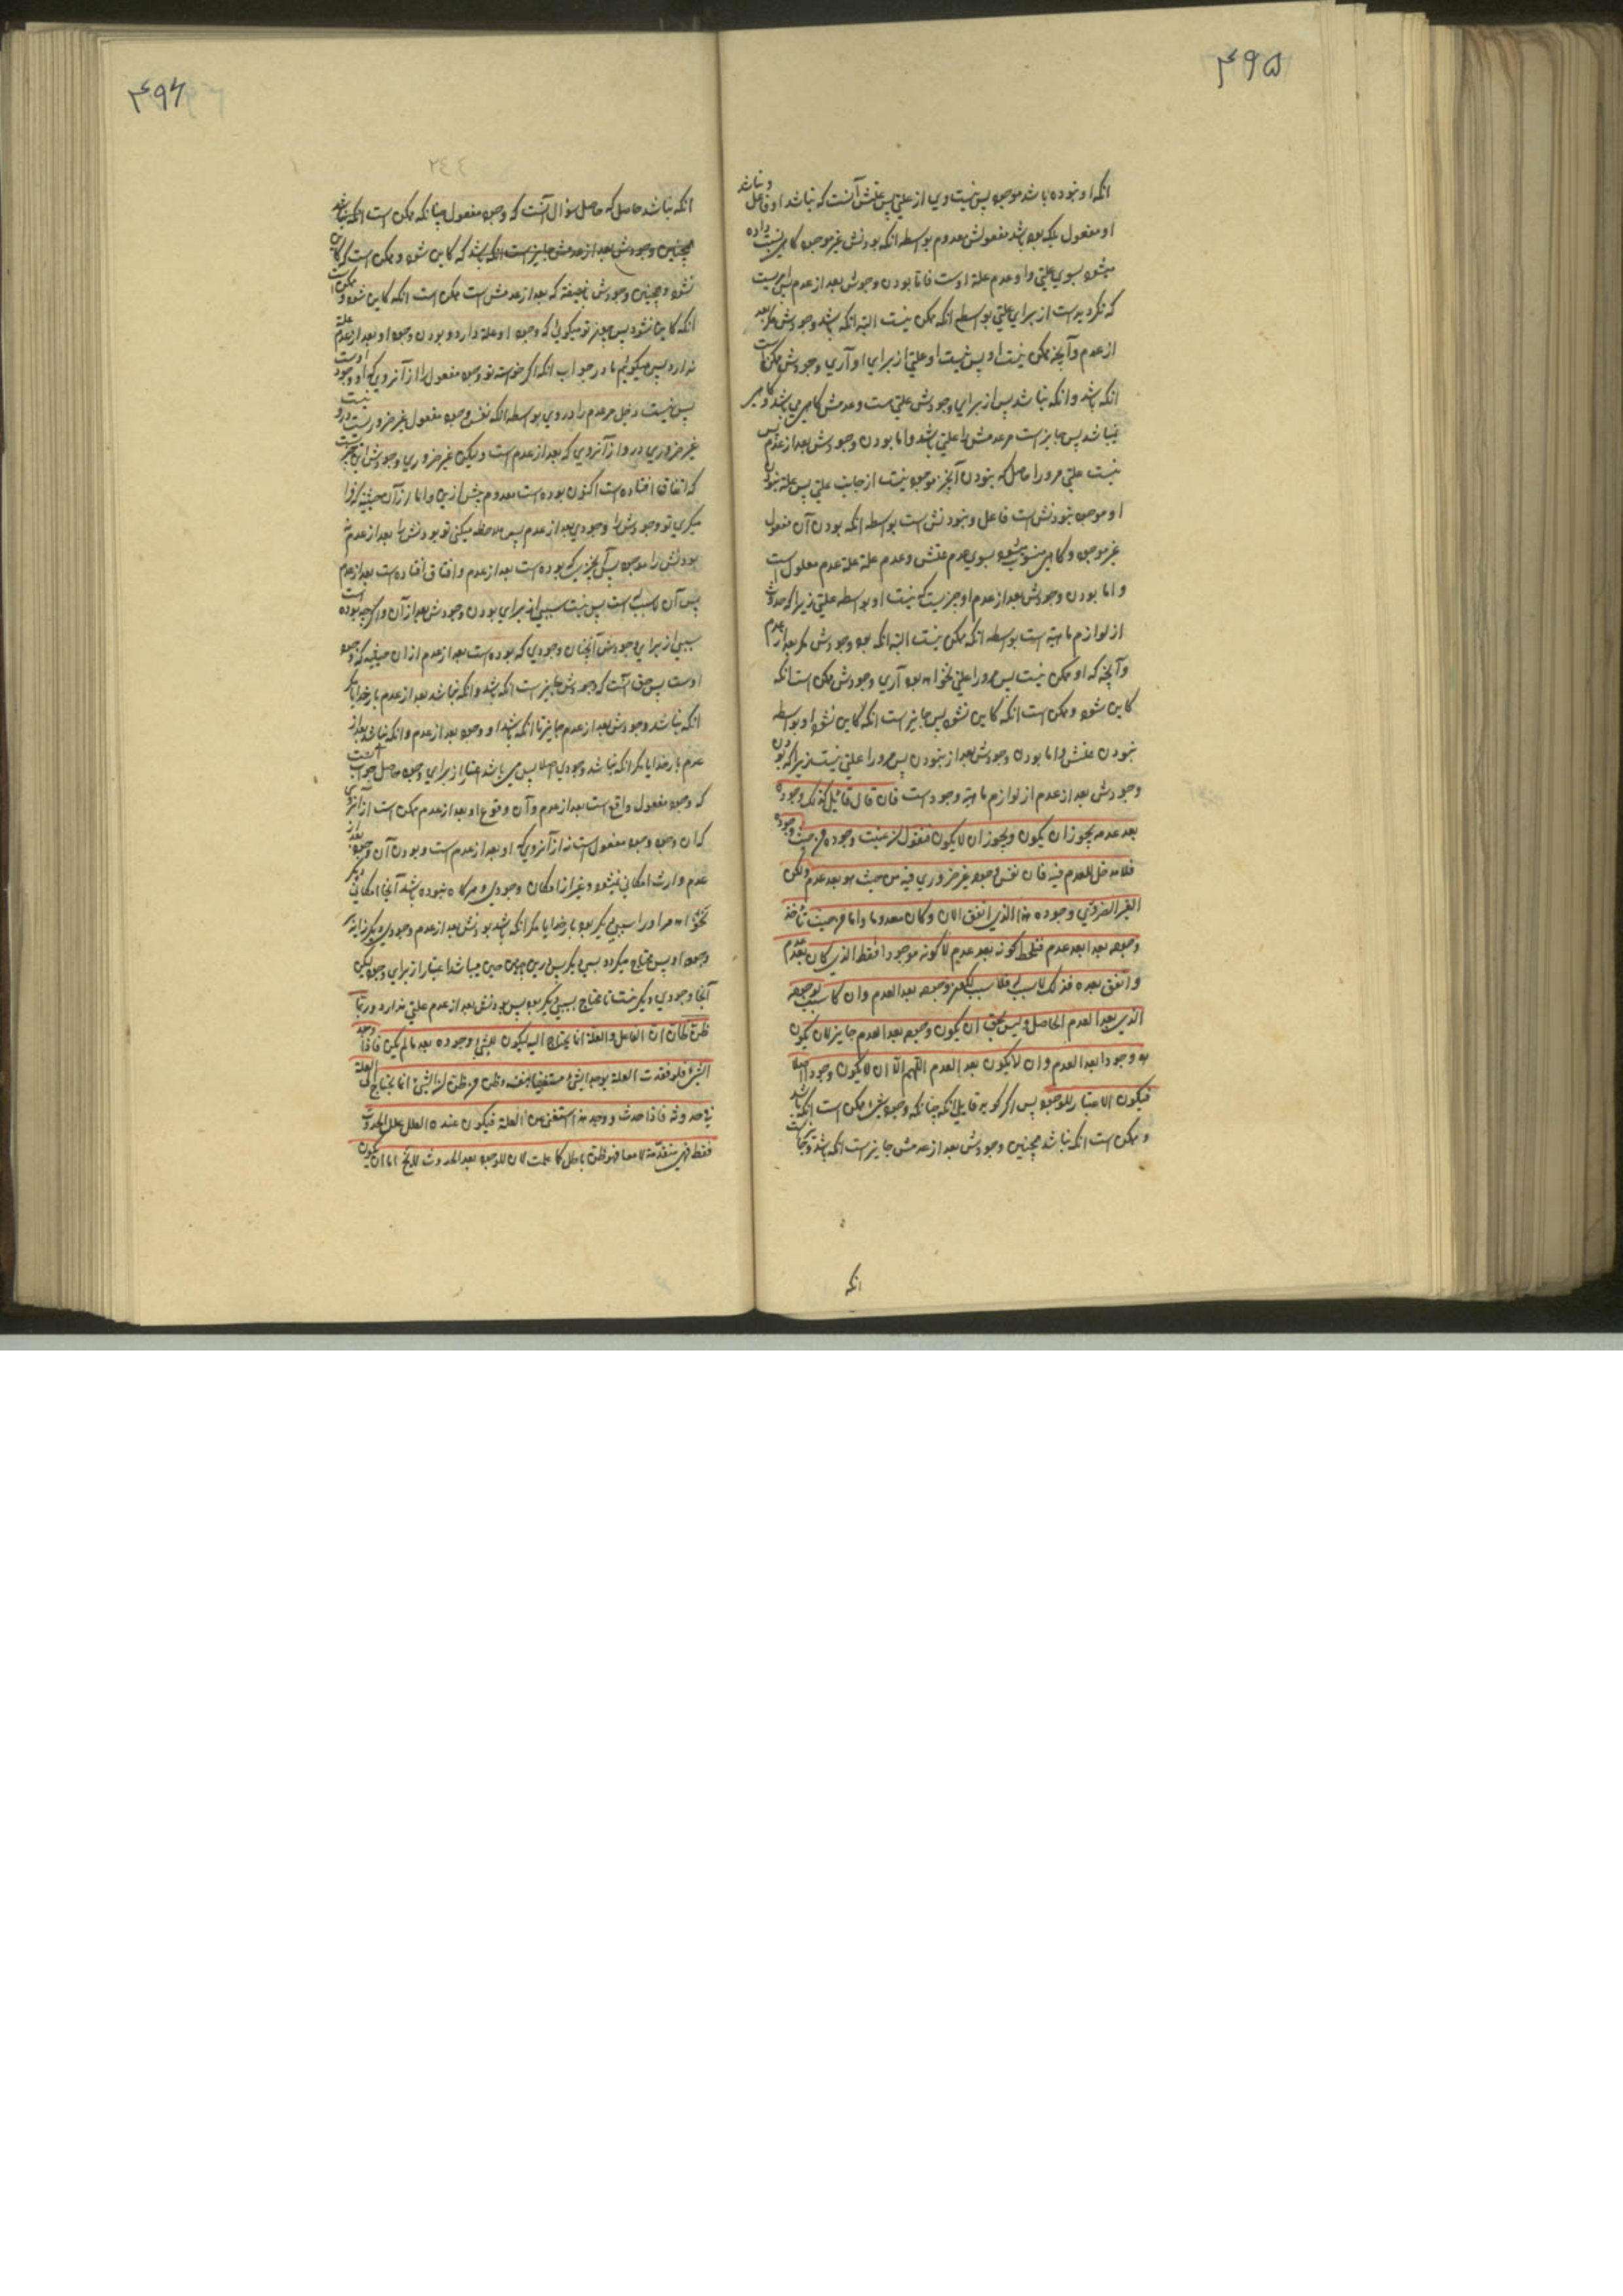 ۴۹۵
انکه او نبوده باشد موجود پس نیست وی از علتی پس علتش آنست که نباشد او فاعل و نباشد
او مفعول بلکه بود باشد مفعولش معدوم بواسطه انکه بودنش غیر موجود کاهی نسبت داده
میشود بسوی علتی و او عدم علة اوست فاما بودن وجودش بعد از عدم پس امریست
که نکردیده است از برای علتی بواسطه انکه ممکن نیست البته انکه باشد وجودش مکر بعد
از عدم و آنچه ممکن نیست او پس نیست او علتی از برای او آری وجودش ممکن است
انکه باشد و انکه نباشد پس از برای وجودش علتی است و عدمش کاهی می باشد و کاهی
نباشد پس جایز است مر عدمش را علتی باشد و اما بودن وجودش بعد از عدم پس
نیست علتی مرورا حاصل که بنودن آنچیز موجود نیست از جانب علتی پس علة نبودن
او موجود نبودنش است فاعل و نبودنش است بواسطه انکه بودن آن مفعول
غیر موجود و کاهی منسوب میشود بسوی عدم علتش و عدم علة علة عدم معلول است
و اما بودن وجودش بعد از عدم او چیزیست که نیست او بواسطه علتی زیرا که حدوث
از لوازم ماهیة است بواسطه انکه ممکن نیست البته انکه بود وجودش مکر بعد از عدم
و آنچه که او ممکن نیست پس مرورا علتی نخواهد بود آری وجودش ممکن است انکه
کاین شود و ممکن است انکه کاین نشود پس جایز است انکه کاین نشود او بواسطه
نبودن علتش و اما بودن وجودش بعد از نبودن پس مرورا علتی نیست زیرا که بودن
وجودش بعد از عدم از لوازم ماهیة وجود است فان قال قائل کذلک وجوده
بعد عدمه یجوز ان یکون ویجوز ان لا یکون فنقول ان عنیت وجوده من حیث وجوده
فلا مدخل للعدم فیه فان نفس وجوده غیر ضروری فیه من حیث هو بعد عدم ولکن
الغیر الضروری وجوده هذا الذی اتفق الان وکان معدوما واما من حیث تأخذ
وجوده بعد عدم فتلحظ کونه بعد عدم لا کونه موجودا فقط الذی کان بعد عدم
واتفق بعده فذلک لا سبب له فلا سبب لکون وجوده بعد العدم وان کان سبب لوجوده
الذی بعد العدم الحاصل ولیس یحق ان یکون وجوده بعد العدم جایز لان یکون
هو وجودا بعد العدم وان لا یکون بعد العدم اللهم الا ان لا یکون وجودا اصلا
فیکون الاعتبار للوجود پس اکر کوید قایلی انکه چنانکه وجود شیء ممکن است انکه باشد
و ممکن است انکه نباشد همچنین وجودش بعد از عدمش جایز است انکه باشد و جایز است
انکه
۴۹۶
٢٤٤
انکه نباشد حاصل که حاصل سؤال آنست که وجود مفعول چنانکه ممکن است انکه نباشد
همچنین وجودش بعد از عدمش جایز است انکه باشد که کاین شود و ممکن است که کاین
نشود همچنین وجودش بصفته که بعد از عدمش است ممکن است انکه کاین شود و ممکن است
انکه کاین نشود پس چه چیز تو میکوئی که وجود او علة دارد و بودن وجود او بعد از عدم علة
ندارد پس میکوئیم ما در جواب انکه اکر خواسته تو وجود مفعول را از آنروی که او وجود اوست
پس نیست دخل مر عدم را در وی بواسطه انکه نفس وجود مفعول غیر ضروریست درو نیست
غیر ضروری درو از آنروی که بعد از عدم است ولیکن غیر ضروری وجودش این چیز است
که اتفاق افتاده است اکنون بوده است معدوم پیش ازین و اما از آن حیثیة که فرا
میکری تو وجودش را وجودی بعد از عدم پس ملاحظه میکنی تو بودنش را بعد از عدم نه
بودنش را موجود پس آنچیزی که بوده است بعد از عدم و اتفاق افتاده است بعد از عدم
پس آن لا سبب است پس نیست سببی از برای بودن وجودش بعد از آن و اکرچه بوده است
سببی از برای وجودش آنچنان وجودی که بوده است بعد از عدم از ان حیثیة که وجود
اوست پس حق آنست که وجودش جایز است انکه باشد و انکه نباشد بعد از عدم بار خدایا مکر
انکه نباشد وجودش بعد از عدم جایز تا انکه باشد او وجود بعد از عدم و انکه نباشد بعد از
عدم بار خدایا مکر انکه نباشد وجودی اصلا پس می باشد اعتبار از برای وجود حاصل جواب آنست
که وجود مفعول واقع است بعد از عدم و آن وقوع او بعد از عدم ممکن است از آنروی
که ان وجود وجود مفعول است نه از آنروی که او بعد از عدم است و بودن آن وجود بعد از
عدم وارث امکانی نمیشود و غیر از امکان وجودی و هرکاه نبوده باشد آنجا امکانی دیکر
نخواهد مر او را سببی دیکر بود بار خدایا مکر انکه باشد بودنش بعد از عدم وجودی دیکر زاید بر
وجود او پس محتاج میکردد بسببی دیکر پس درین هنکام می باشد اعتبار از برای وجود لیکن
آنجا وجودی دیکر نیست تا محتاج بسببی دیکر بود پس بودنش بعد از عدم علتی ندارد وربما
ظن ظان ان الفاعل والعلة انما یحتاج الیه لیکون للشیء وجوده بعد ما لم یکن فاذا وجد
الشیء فلو فقدت العلة لوجد الشیء مستغنیا بنفسه وظن من ظن ان الشیء انما یحتاج الی العلة
فی حدوثه فاذا حدث ووجد فقد استغنی عن العلة فیکون عنده العلل علل الحدوث
فقط فهی متقدمة لا معا فهو ظن باطل کما علمت لان للوجود بعد الحدوث لا یخ اما ان یکون